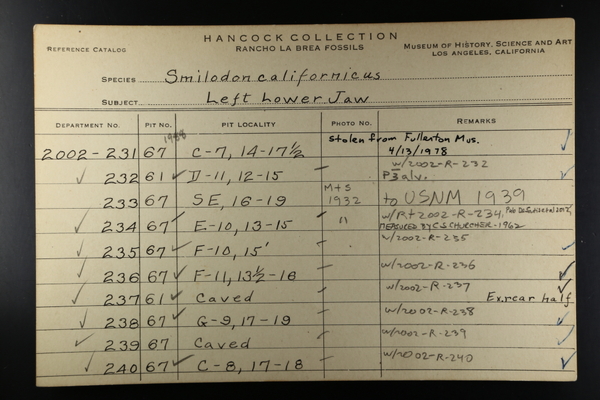 HANCOCK COLLECTION
REFERENCE CATALOG RANCHO LA BREA FOSSILS MUSEUM OF HISTORY, SCIENCE AND ART
LOS ANGELES, CALIFORNIA
SPECIES Smilodon californicus
SUBJECT Left Lower Jaw
DEPARTMENT NO. PIT NO. PIT LOCALITY PHOTO NO. REMARKS
1988 stolen from Fullerton Mus.
2002-231 67 C-7, 14-17½ 4/13/1978
w/2002-R-232
232 61 D-11, 12-15 P3 alv.
233 67 SE, 16-19 M+S 1932 to USNM 1939
234 67 E-10, 13-15 " w/Pt 2002-R-234,
MEASURED BY C.S. CHURCHER-1962
235 67 F-10, 15' w/2002-R-235
236 67 F-11, 13½-18 w/2002-R-236
237 61 Caved w/2002-R-237
Ex. rear half
238 67 G-9, 17-19 w/2002-R-238
239 67 Caved w/2002-R-239
240 67 C-8, 17-18 w/2002-R-240